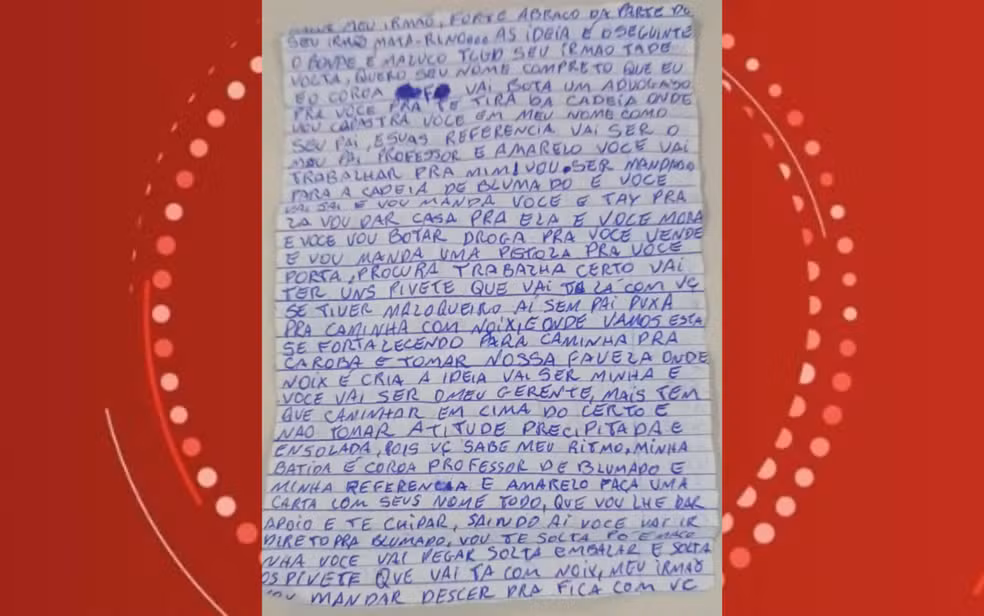 MEU IRMÃO, FORTE ABRAÇO DA PARTE DO
SEU IRMÃO MATA-RINDOOO AS IDEIA E OSEGUINTE
O BONDE E MALUCO TLGD SEU IRMAO TADE
VOLTA, QUERO SEU NOME COMPRETO QUE EU
EO COROA VAI BOTA UM ADVOGADO
PRA VOCE PRA TE TIRA DA CADEIA ONDE
VOU CAPASTRA VOCE EM MEU NOME COMO
SEU PAI, ESUAS REFERENCIA VAI SER O
MEU PAI PROFESSOR E AMARELO VOCE VAI
TRABALHAR PRA MIM, VOU SER MANDADO
PARA A CADEIA DE BLUMADO E VOCE
VAI SAI E VOU MANDA VOCE E TAY PRA
LA VOU DAR CASA PRA ELA E VOCE MORA
E VOCE VOU BOTAR DROGA PRA VOCE VENDE
E VOU MANDA UMA PISTOLA PRA VOCE
PORTA, PROCURA TRABALHA CERTO VAI
TER UNS PIVETE QUE VAI TA LÁ COM VC
SE TIVER MALOQUEIRO AÍ SEM PAI PUXA
PRA CAMINHA COM NOIX, E ONDE VAMOS ESTA
SE FORTALECENDO PARA CAMINHA PRA
CAROBA E TOMAR NOSSA FAVELA ONDE
NOIX E CRIA A IDEIA VAI SER MINHA E
VOCE VAI SER OMEU GERENTE, MAIS TEM
QUE CAMINHAR EM CIMA DO CERTO E
NAO TOMAR ATITUDE PRECIPITADA E
ENSOLADA, POIS VC SABE MEU RITMO, MINHA
BATIDA E COROA PROFESSOR DE BLUMADO E
MINHA REFERENCIA E AMARELO FAÇA UMA
CARTA COM SEUS NOME TODO, QUE VOU LHE DAR
APOIO E TE CUIPAR, SAINDO AÍ VOCE VAI IR
DIRETO PRA BLUMADO, VOU TE SOLTA PÓ E MACO
NHA VOCE VAI PEGAR SOLTA EMBALAR E SOLTA
OS PIVETE QUE VAI TA COM NOIX, MEU IRMÃO
VOU MANDAR DESCER PRA FICA COM VC